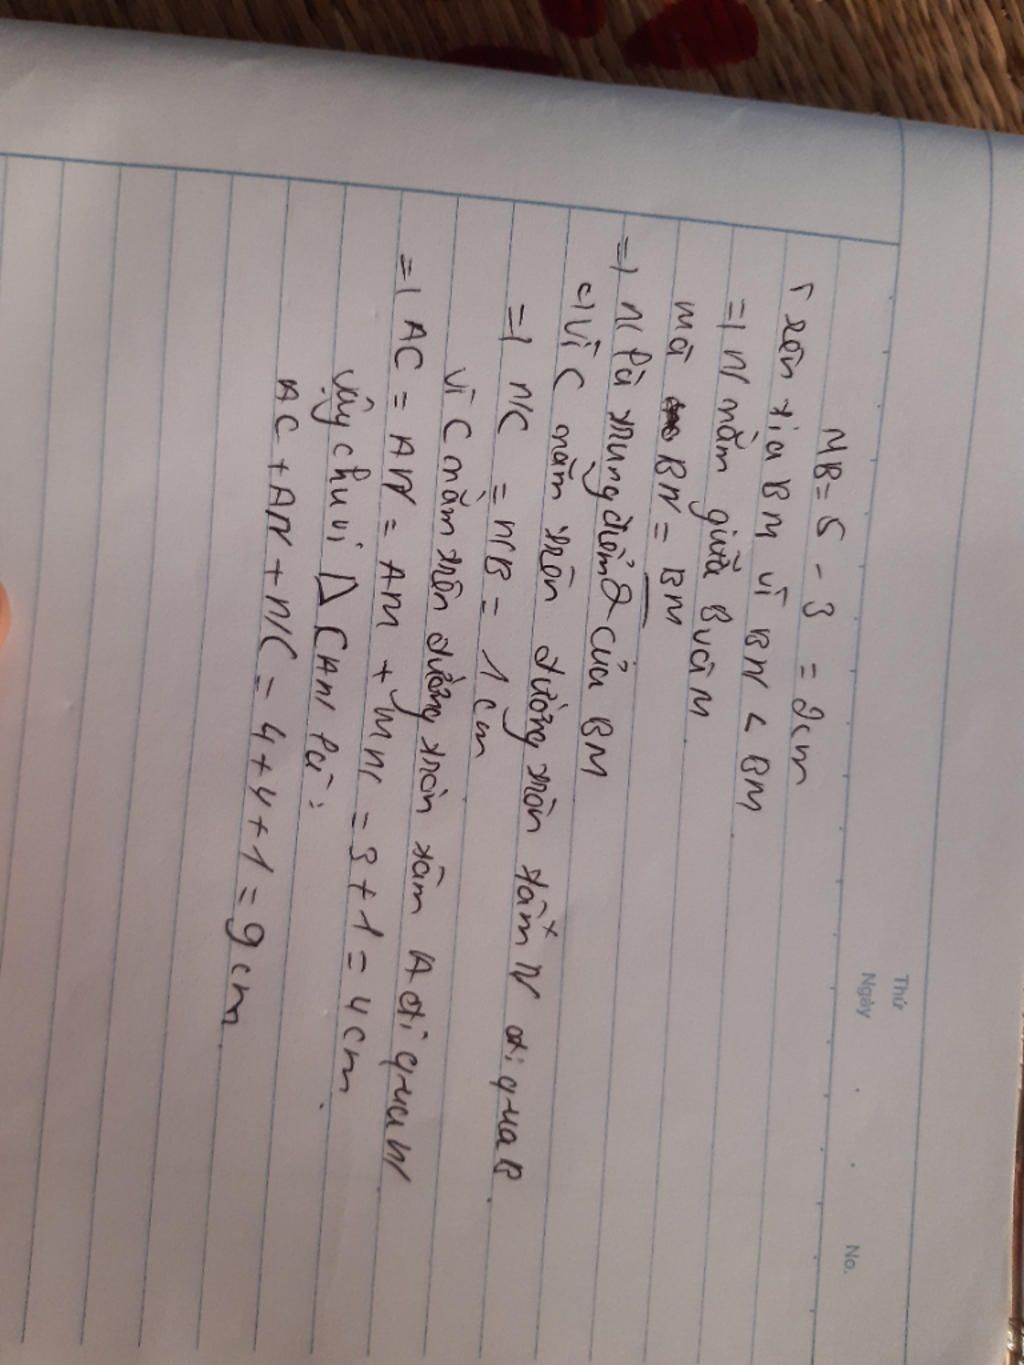 Thứ
Ngày
No.
MB = 5 - 3 = 2cm
Trên tia BM vì BN < BM
=> N nằm giữa B và M
mà BN = BM
2
=> N là trung điểm của BM
c) Vì C nằm trên đường tròn tâm N đi qua B
=> NC = NB = 1 cm
Vì C nằm trên đường tròn tâm A đi qua N
=> AC = AN = AM + MN = 3 + 1 = 4 cm
Vậy chu vi Δ CAN là :
AC + AN + NC = 4 + 4 + 1 = 9 cm